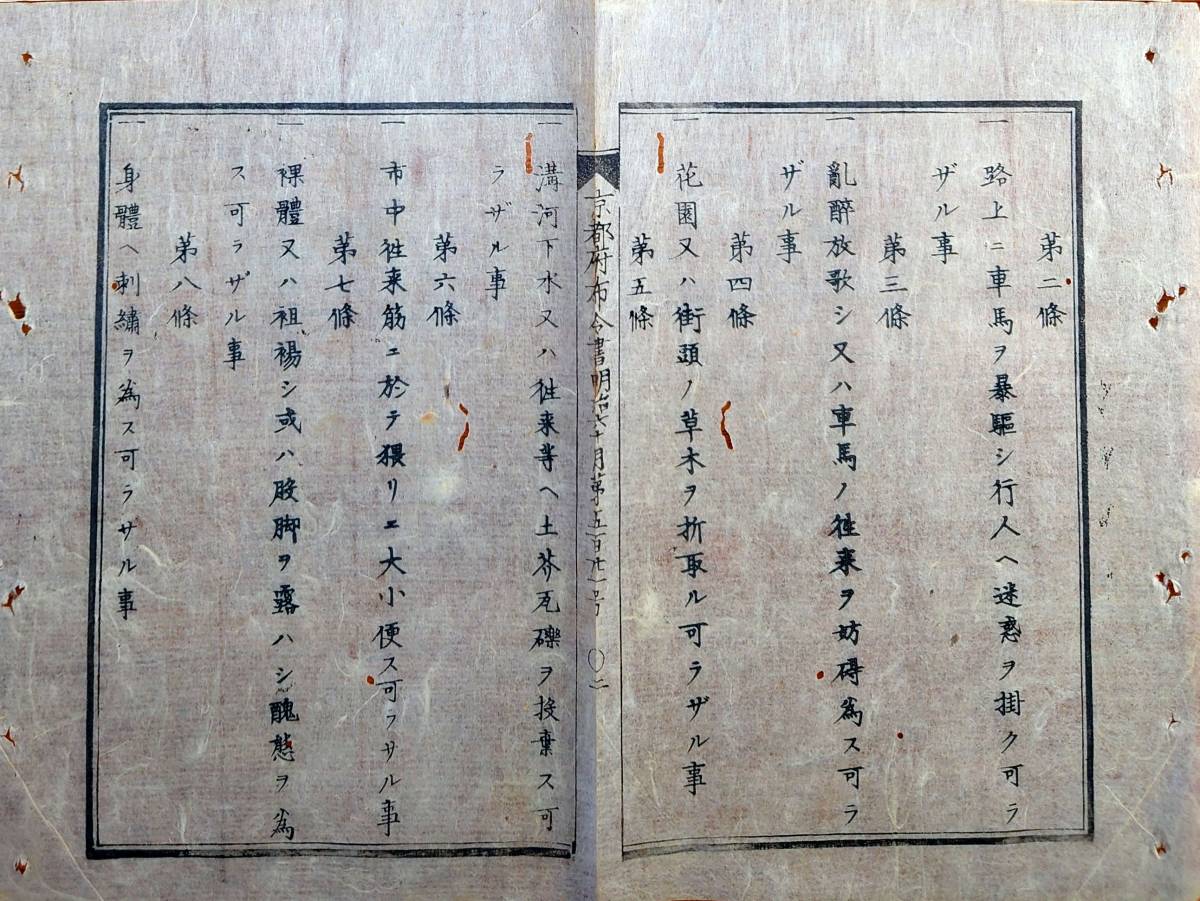 第二條
一 路上ニ車馬ヲ暴驅シ行人ヘ迷惑ヲ掛ク可ラ
ザル事
第三條
一 亂醉放歌シ又ハ車馬ノ徃来ヲ妨碍為ス可ラ
ザル事
第四條
一 花園又ハ街頭ノ草木ヲ折取ル可ラザル事
第五條
京都府布令書明治七十月第五百廿一号 〇二
一 溝河下水又ハ徃来等ヘ土芥瓦礫ヲ投棄ス可
ラザル事
第六條
一 市中徃来筋エ於テ猥リエ大小便ス可ラサル事
第七條
一 裸體又ハ袒裼シ或ハ股脚ヲ露ハシ醜態ヲ為
ス可ラザル事
第八條
一 身體ヘ刺繡ヲ為ス可ラサル事